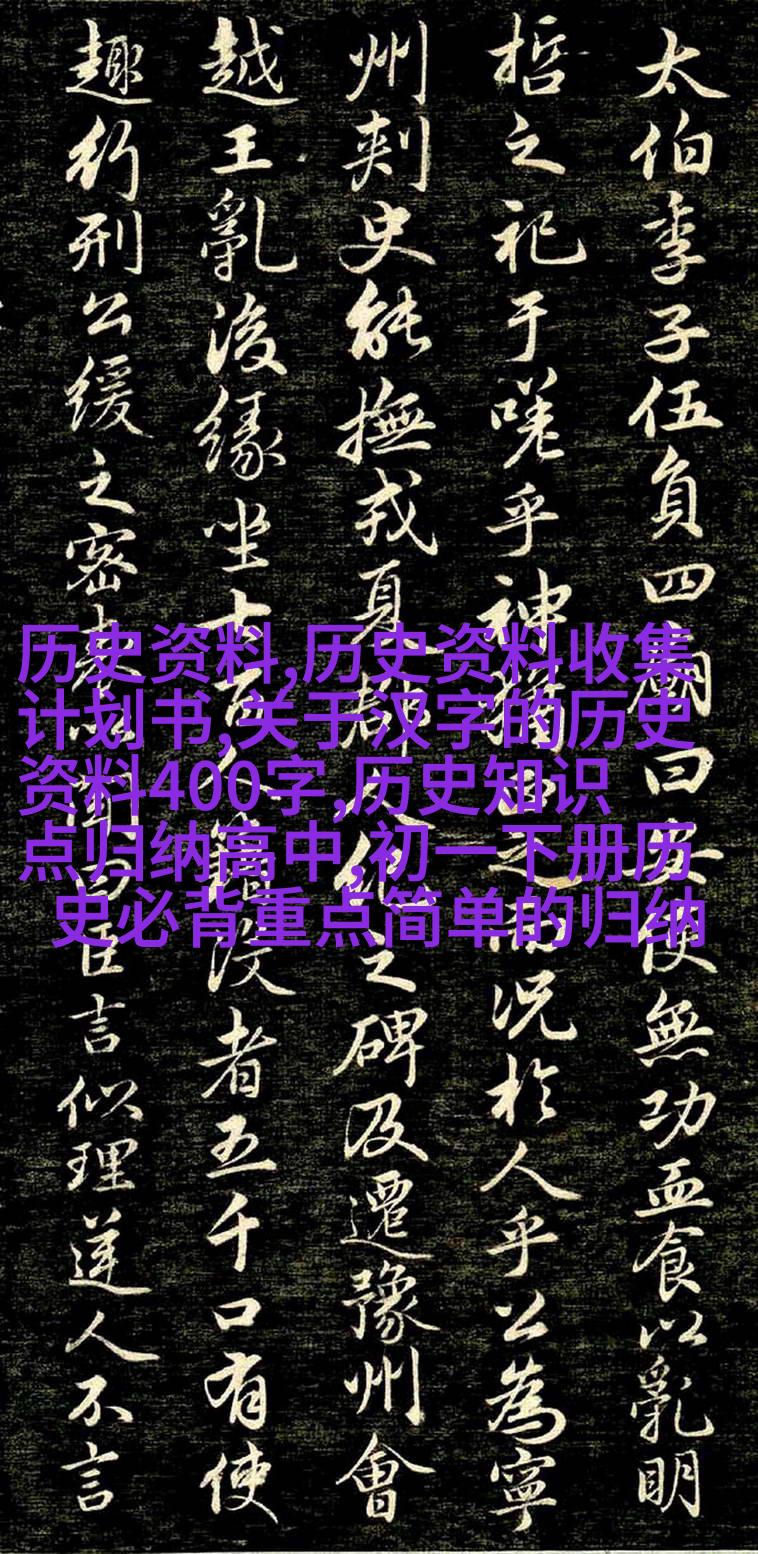 太伯季子伍負四廟曰安使無功血食以亂明
哲之祀于嗟乎神猶之而況於人乎公為寧
州刺史能撫戎夏人紀之碑及遷豫州會
越王亂後緣坐七百人籍沒者五千口有使
趣行刑公緩之密表聞曰臣言似理逆人不言
历史资料,历史资料收集
计划书,关于汉字的历史
资料400字,历史知识
点归纳高中,初一下册历
史必背重点简单的归纳